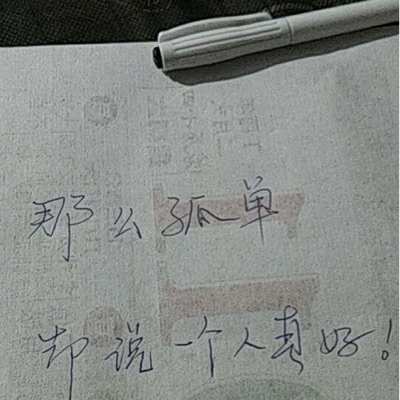 那么孤单
却说一个人真好!